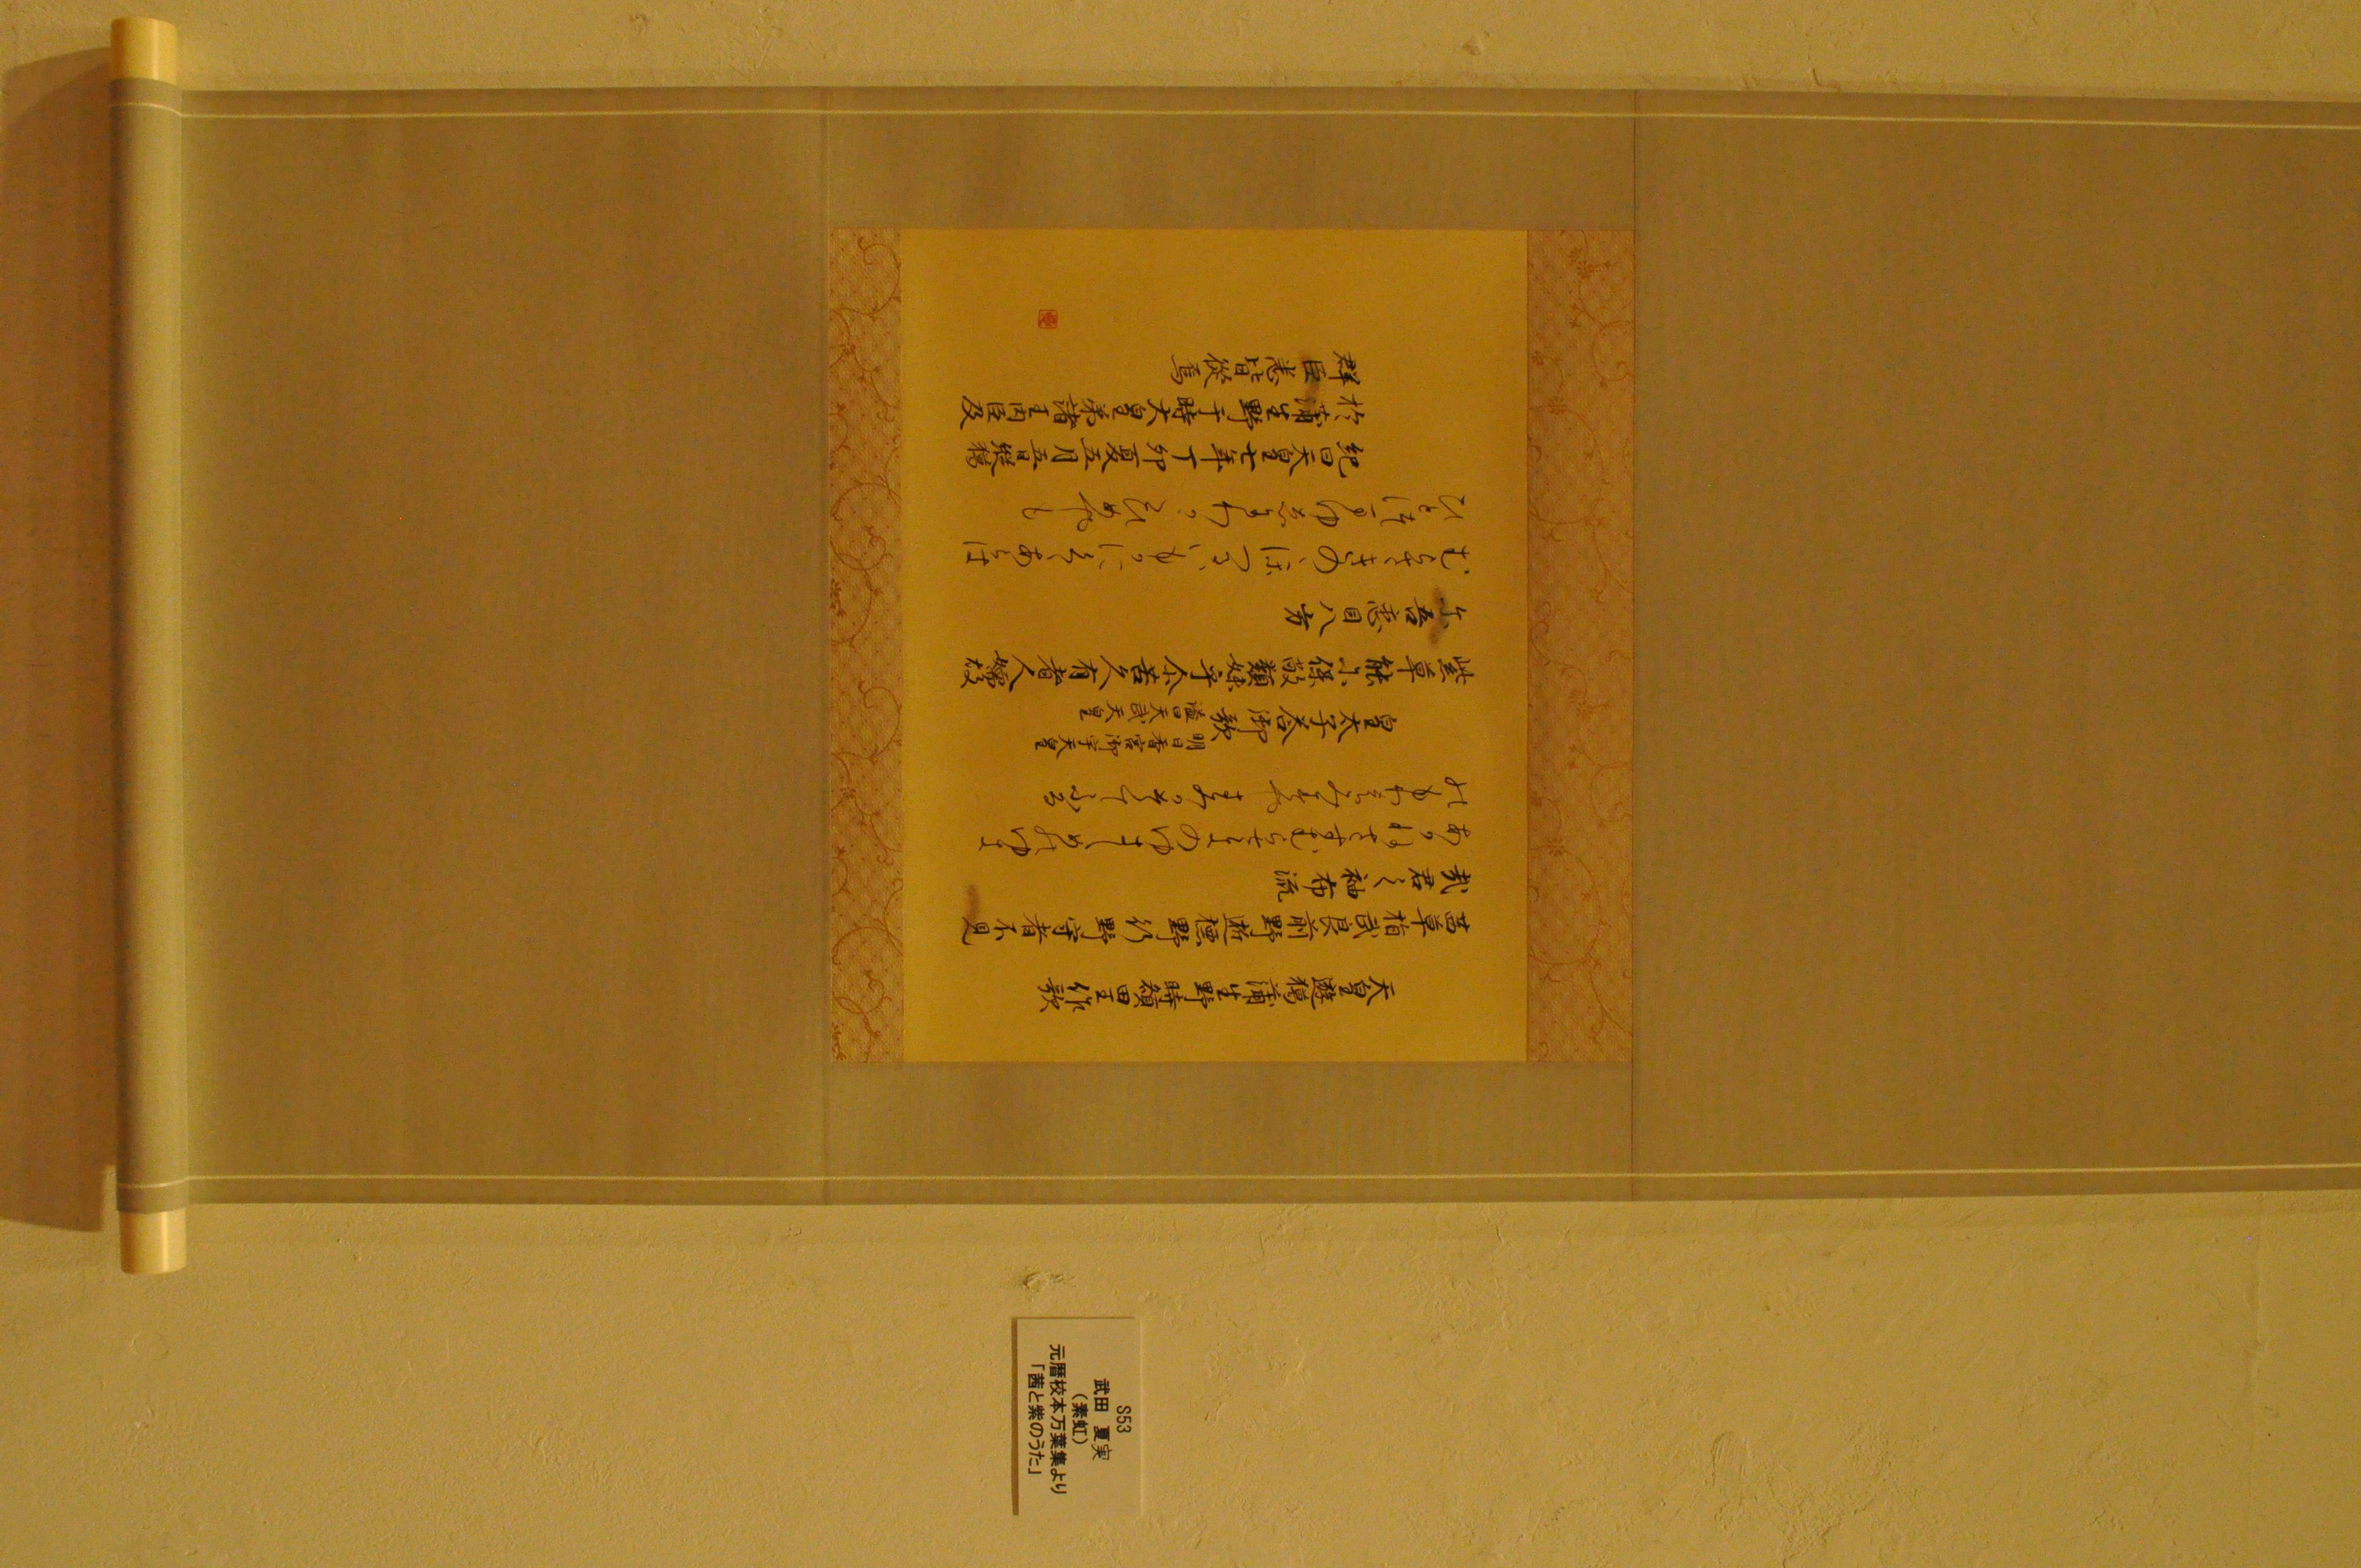 天皇遊獦蒲生野時額田王作歌
茜草指武良前野逝標野行野守者不見
哉君之袖布流
あかねさすむらさきのゆきしめのゆき
のもりはみすやきみかそてふる
皇太子答御歌
明日香宮御宇天皇
謚曰天武天皇
紫草能尓保敝類妹乎尓苦久有者人嬬故
尓吾恋目八方
むらさきのにほへるいもをにくゝあらは
ひとつまゆゑにわれこひめやも
紀曰天皇七年丁卯夏五月五日縱獦
於蒲生野于時大皇弟諸王内臣及
群臣悉皆從焉
S53
武田 夏実
(素虹)
元暦校本万葉集より
「茜と紫のうた」